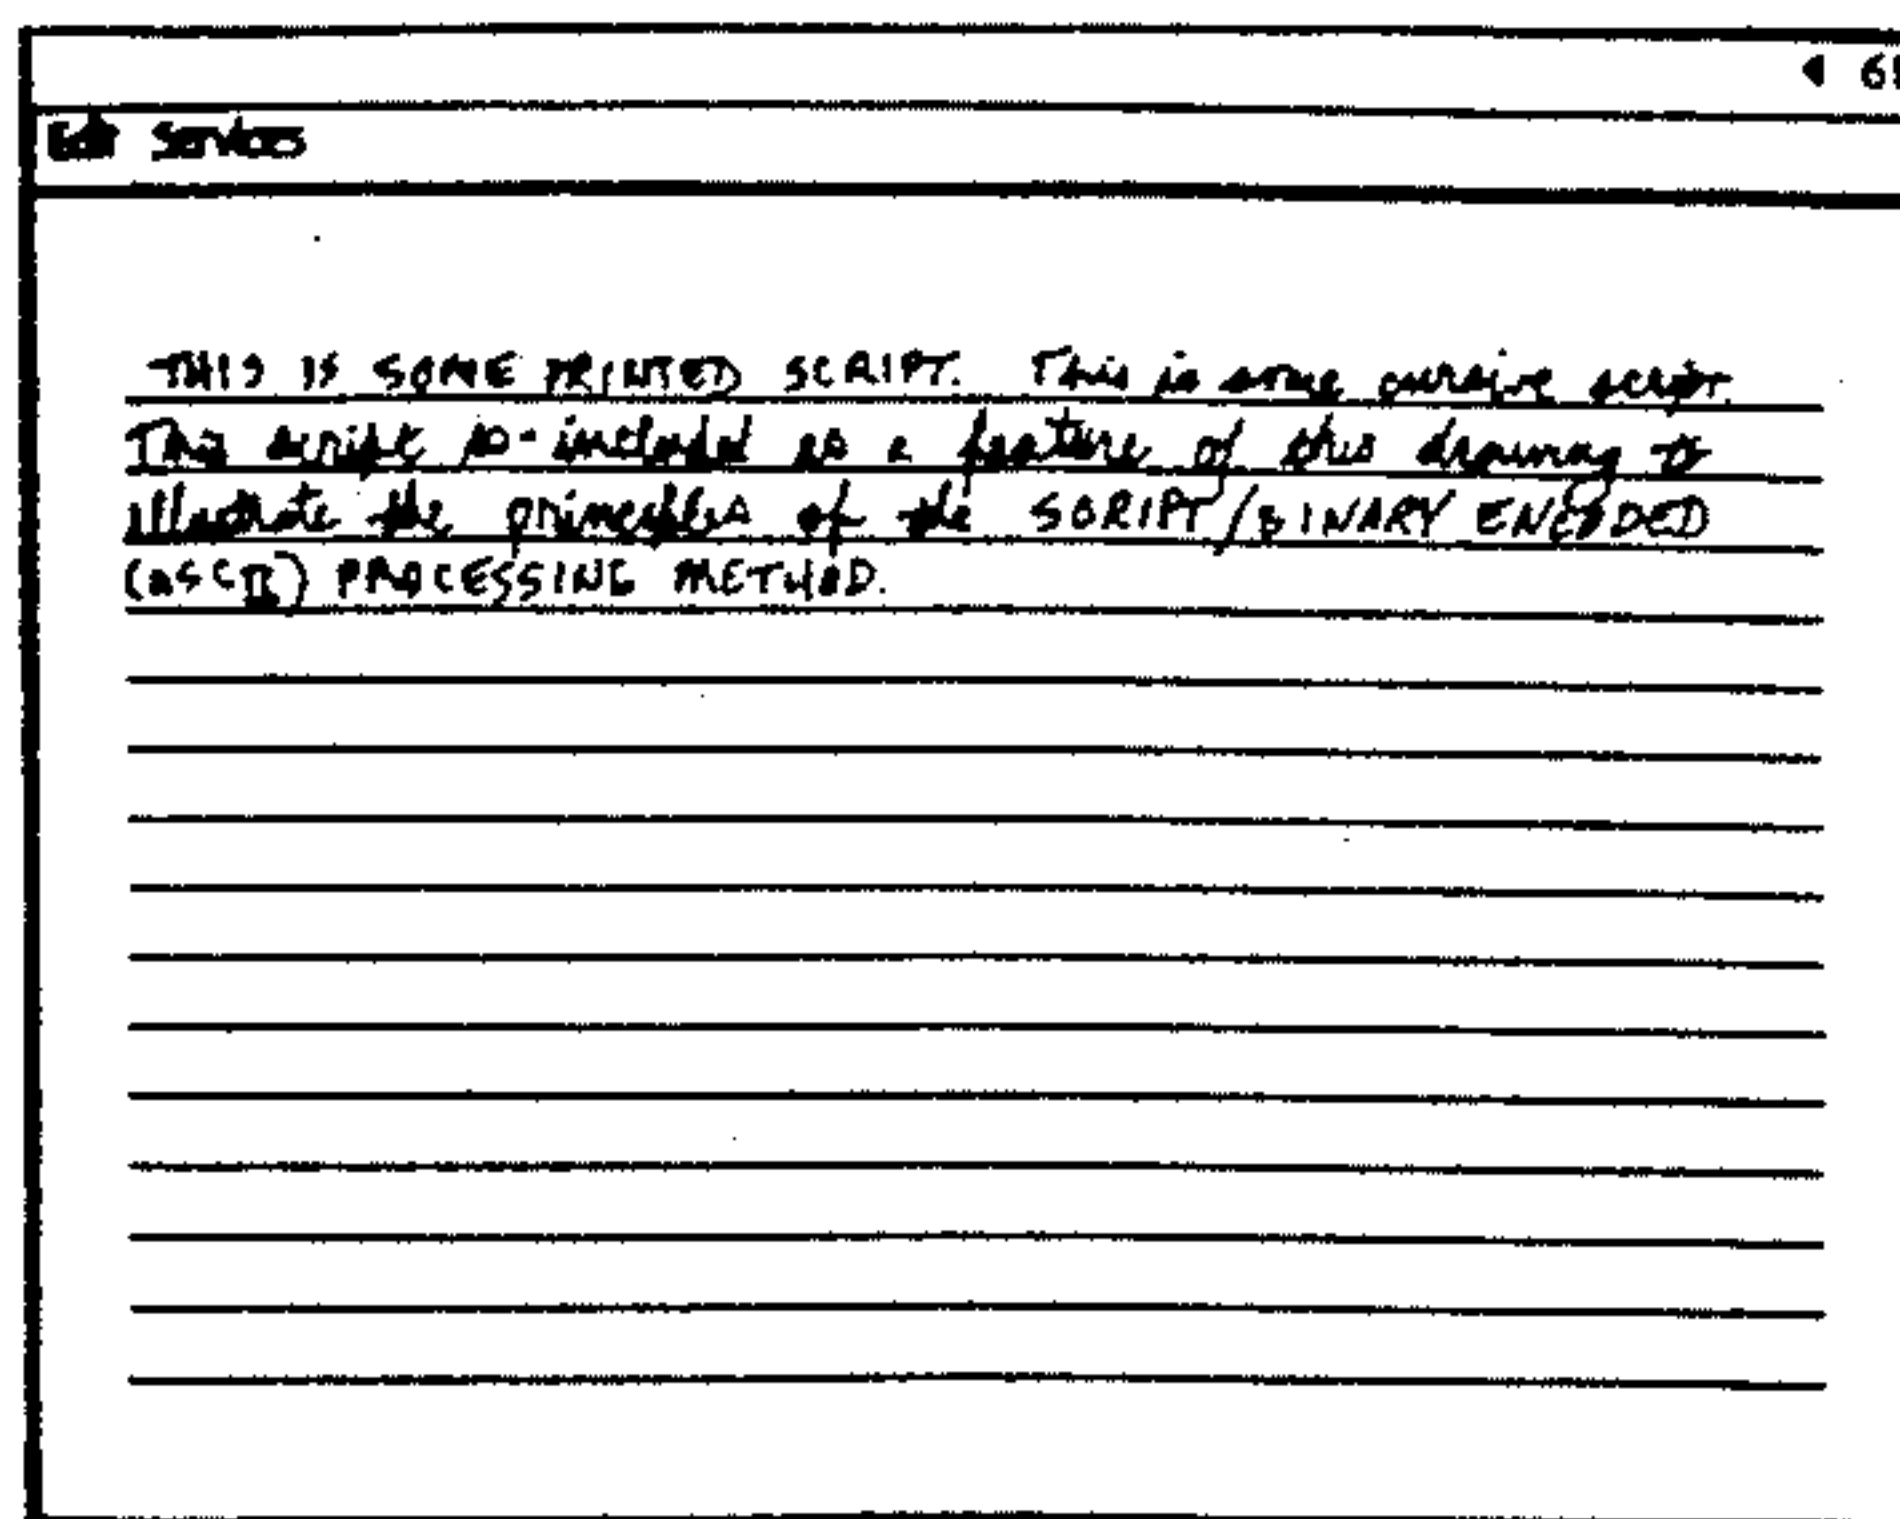 ◀ 6
Edit Services
THIS IS SOME PRINTED SCRIPT. This is some cursive script.
This script is included as a feature of this drawing to
illustrate the principles of the SCRIPT/BINARY ENCODED
(ASCII) PROCESSING METHOD.